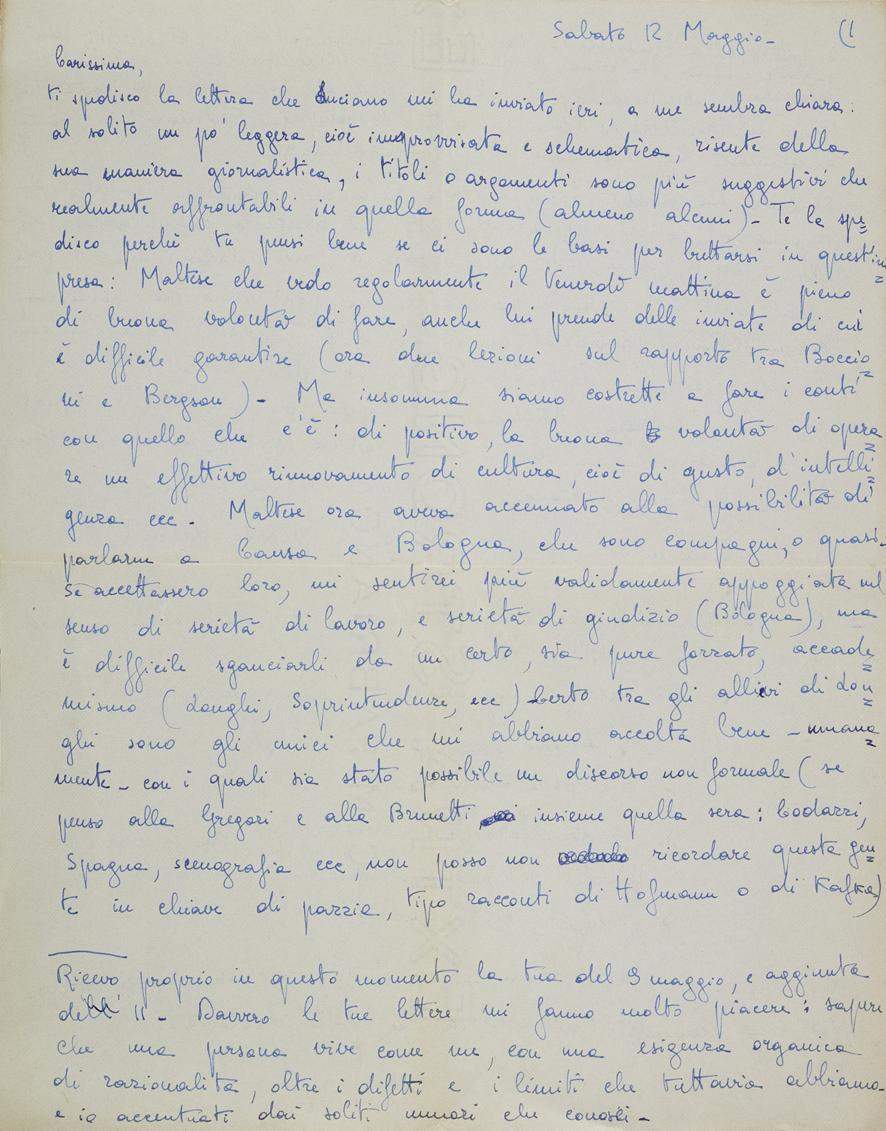 Sabato 12 Maggio - (1
Carissima,
ti spedisco la lettera che Luciano mi ha inviato ieri, a me sembra chiara:
al solito un po' leggera, cioè improvvisata e schematica, risente della
sua maniera giornalistica, i titoli o argomenti sono più suggestivi che
realmente affrontabili in quella forma (almeno alcuni) - Te la spe=
disco perchè tu pensi bene se ci sono le basi per buttarsi in quest'im=
presa: Maltese che vedo regolarmente il Venerdì mattina è pieno
di buona volontà di fare, anche lui prende delle inviate di cui
è difficile garantire (ora due lezioni sul rapporto tra Boccio=
ni e Bergson) - Ma insomma siamo costrette a fare i conti
con quello che c'è: di positivo, la buona volontà di opera=
re un effettivo rinnovamento di cultura, cioè di gusto, d'intelli=
genza ecc - Maltese ora aveva accennato alla possibilità di
parlarne a Causa e Bologna, che sono compagni, o quasi -
Se accettassero loro, mi sentirei più validamente appoggiata nel
senso di serietà di lavoro, e serietà di giudizio (Bologna), ma
è difficile sganciarli da un certo, sia pure forzato, accade=
mismo (Longhi, Soprintendenze, ecc) - Certo tra gli allievi di Lon=
ghi sono gli unici che mi abbiano accolta bene - umana=
mente - con i quali sia stato possibile un discorso non formale (se
penso alla Gregori e alla Brunetti insieme quella sera: Codazzi,
Spagna, scenografia ecc, non posso non ricordare questa gen=
te in chiave di pazzia, tipo racconti di Hofmann o di Kafka)
Ricevo proprio in questo momento la tua del 9 maggio, e aggiunta
dell' 11 - Davvero le tue lettere mi fanno molto piacere: sapere
che una persona vive come me, con una esigenza organica
di razionalità, oltre i difetti e i limiti che tuttavia abbiamo -
e io accentuati dai soliti umori che conosci -